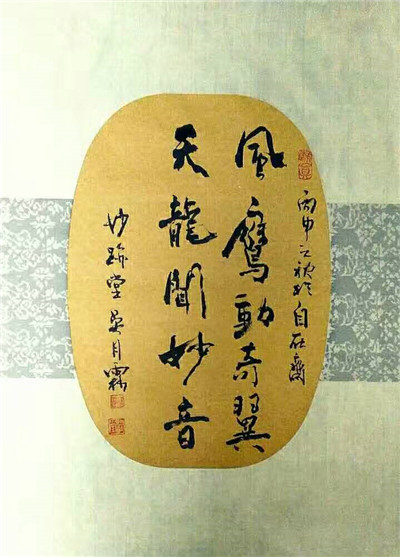 風鷹動奇翼
天龍聞妙音
丙申之秋於自在齋
妙跡堂吳月霖